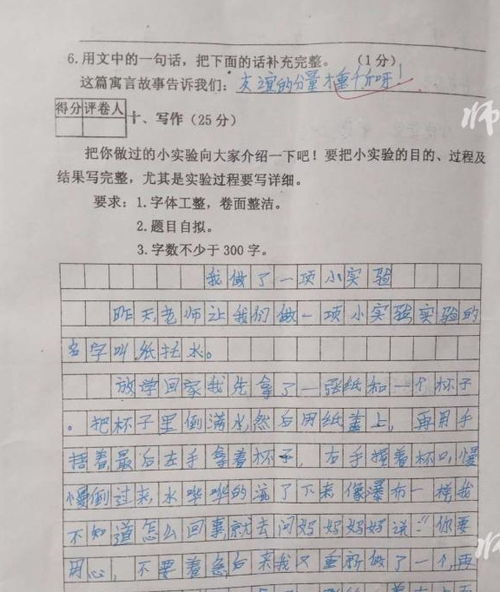 6.用文中的一句话，把下面的话补充完整。（1分）
这篇寓言故事告诉我们：友谊的分量　千斤呀！
得分 评卷人
十、写作（25分）
师
把你做过的小实验向大家介绍一下吧！要把小实验的目的、过程及
结果写完整，尤其是实验过程要写详细。
要求：1.字体工整，卷面整洁。
2.题目自拟。
3.字数不少于300字。
我做了一项小实验
昨天老师让我们做一项小实验实验的
名字叫，纸托水。
放学回家我先拿了一张纸和一个杯子
。把杯子里倒满水然后用纸盖上，再用手
捂着最后左手拿着杯子，右手捂着杯口，慢
慢倒过来，水哗哗的流了下来像瀑布一样我
不知道怎么回事就去问妈妈妈妈说：“你要
用心，不要着急后来我又重新做了一个，再
师